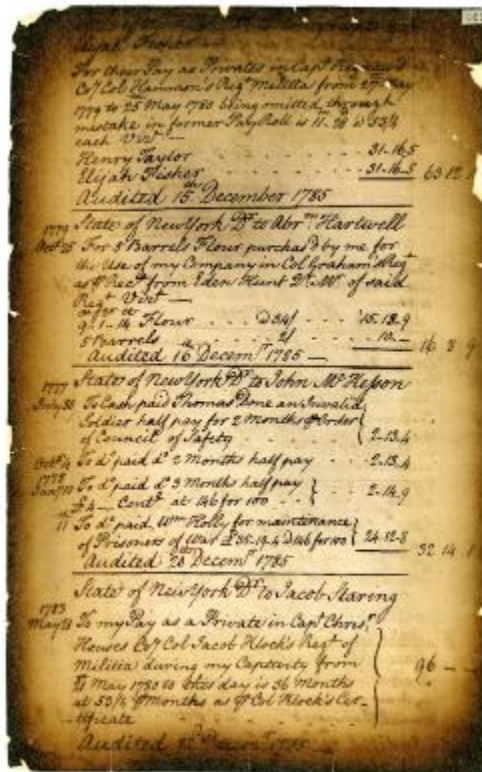 Elijah Fisher
For their Pay as Privates in Capt
Coy Col Hamman's Regt Militia from 27th May
1779 to 25 May 1780 being omitted through
mistake in former Pay Roll is 11. 28 @ 53/4
each Vizt —
Henry Taylor - - - 31-16-5
Elijah Fisher - - - 31-16-5 63 12
Audited 15th December 1785
1779 State of New York Dr to Abrm Hartwell
Octr 25 For 5 Barrels Flour purchas'd by me for
the Use of my Company in Col Graham's Regt
as Rect from Eden Hunt Qr Mr of said
Regt Vizt —
9-1-14 Flour - - - @ 34/ - 15-13-9
5 Barrels - - - 2/ - 10-- 16 3 9
Audited 16th Decemr 1785 —
1777 State of New York Dr to John McKesson
July 30 To Cash paid Thomas Done an Invalid
Soldier half pay for 2 Months Order
of Council of Safety - - - 2-13-4
Octr 4 To do paid do 2 Months half pay - - 2-13-4
1778
Jany 10 To do paid do 3 Months half pay
£4 — Contl at 146 for 100 - - 2-14-9
11 To do paid Wm Holly for maintenance
of Prisoners of War £35-19-4 @ 146 for 100 24-12-8
32 14 1
Audited 20th Decemr 1785
State of New York Dr to Jacob Staring
1783
May 21 To my Pay as a Private in Capt Chrisr
Houses Coy Col Jacob Klock's Regt of
Militia during my Captivity from
21 May 1780 to this day is 36 Months
at 53/4 Months as Col Klock's Cer-
tificate - - - 96 - -
Audited Decemr 1785